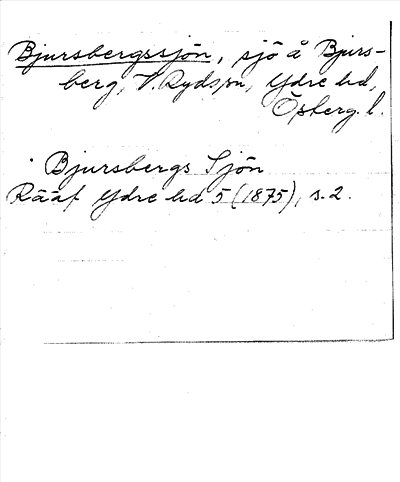 Bjursbergssjön, sjö å Bjurs-
berg, V. Ryds sn, Ydre hd,
Östberg. l.
Bjursbergs Sjön
Rääf Ydre hd 5 (1875), s. 2.